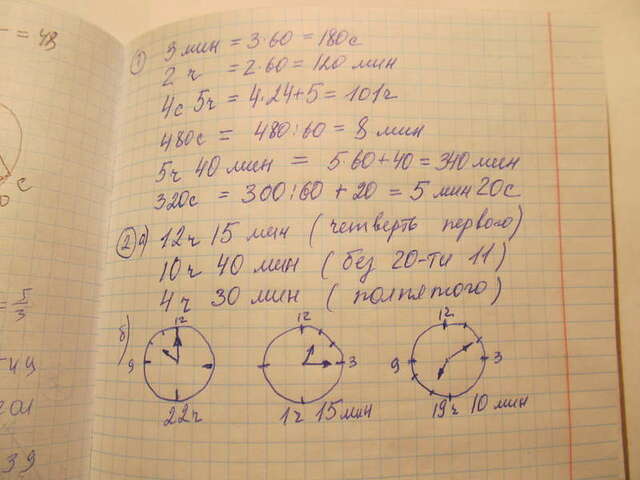 = 48
① 3 мин = 3·60 = 180с
2 ч = 2·60 = 120 мин
4с 5ч = 4·24+5 = 101ч
480с = 480:60 = 8 мин
5ч 40 мин = 5·60+40 = 340 мин
320с = 300:60 + 20 = 5 мин 20с
② а) 12ч 15 мин (четверть первого)
10ч 40 мин (без 20-ти 11)
4ч 30 мин (полпятого)
б) 12 12 12
9 3 9 3
22ч 1ч 15мин 19ч 10 мин
с
= 5/3
49
201
39